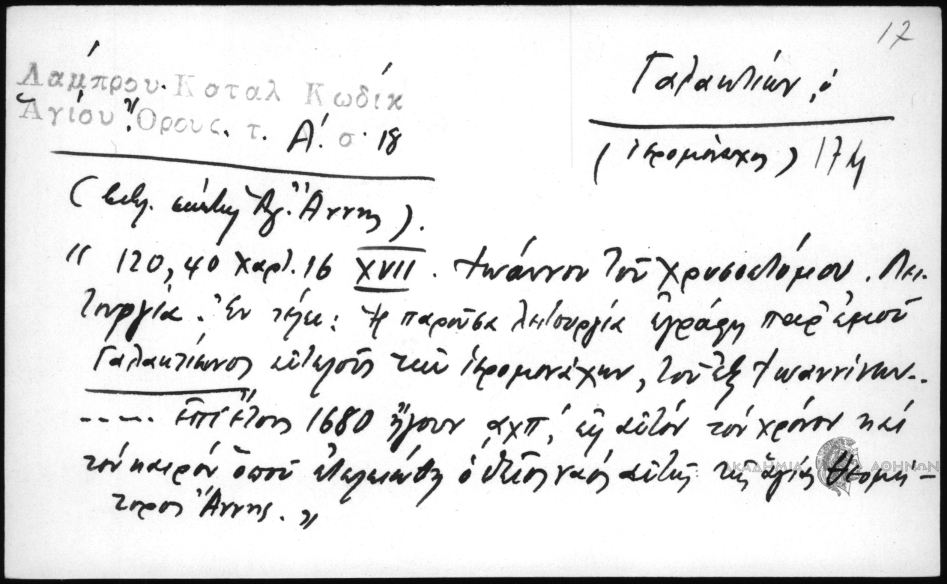 17
Λάμπρου. Καταλ Κωδίκ
Ἁγίου Ὄρους. τ. Α΄. σ. 18
Γαλακτίων, ὁ
(ἱερομόναχος) 17
(βιβλ. σκήτη Ἁγ. Ἄννης).
“ 120,40 χαρτ. 16 XVII. Ἰωάννου τοῦ Χρυσοστόμου. Λει-
τουργία. Ἐν τέλει: Ἡ παροῦσα λειτουργία ἐγράφη παρ' ἐμοῦ
Γαλακτίωνος εὐτελοῦς τῶν ἱερομονάχων, τοῦ ἐξ Ἰωαννίνων..
..... Ἐπὶ ἔτους 1680 ἤγουν αχπ', εἰς αὐτὸν τὸν χρόνον καὶ
τὸν καιρὸν ὁποῦ ἐτελειώθη ὁ θεῖος ναὸς αὐτῆς τῆς ἁγίας Θεομή-
τορος Ἄννης.„
ΑΚΑΔΗΜΙΑ ΑΘΗΝΩΝ